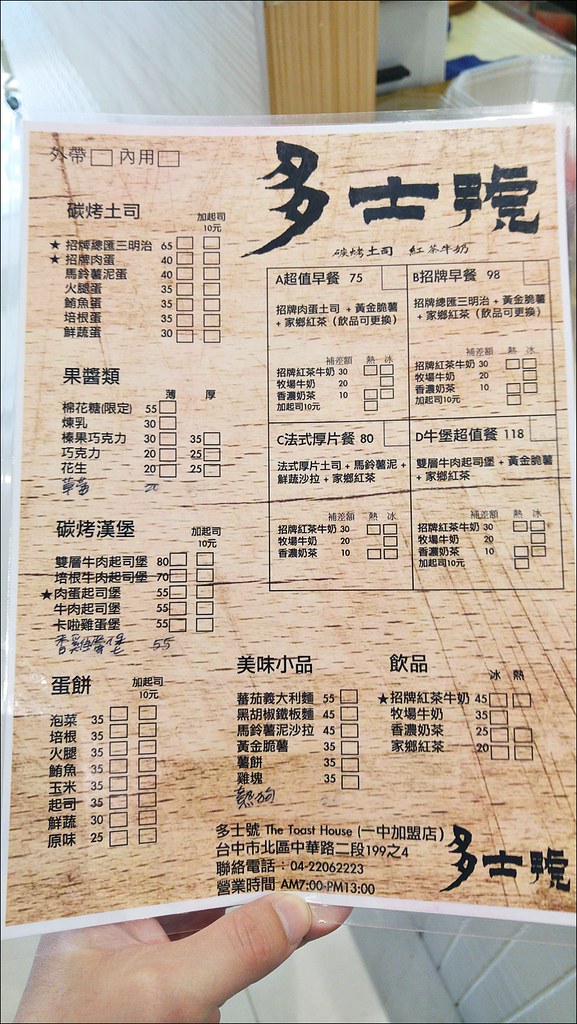 外帶 內用
多士號
碳烤土司 紅茶牛奶
碳烤土司 加起司10元
★ 招牌總匯三明治 65
★ 招牌肉蛋 40
馬鈴薯泥蛋 40
火腿蛋 35
鮪魚蛋 35
培根蛋 35
鮮蔬蛋 30
果醬類 薄 厚
棉花糖(限定) 55
煉乳 30
榛果巧克力 30 35
巧克力 20 25
花生 20 25
草莓 20
碳烤漢堡 加起司10元
雙層牛肉起司堡 80
培根牛肉起司堡 70
★肉蛋起司堡 55
牛肉起司堡 55
卡啦雞蛋堡 55
香雞蛋堡 55
蛋餅 加起司10元
泡菜 35
培根 35
火腿 35
鮪魚 35
玉米 35
起司 35
鮮蔬 30
原味 25
A超值早餐 75
招牌肉蛋土司 + 黃金脆薯
+ 家鄉紅茶（飲品可更換）
補差額 熱 冰
招牌紅茶牛奶 30
牧場牛奶 20
香濃奶茶 10
加起司10元
B招牌早餐 98
招牌總匯三明治 + 黃金脆薯
+ 家鄉紅茶（飲品可更換）
補差額 熱 冰
招牌紅茶牛奶 30
牧場牛奶 20
香濃奶茶 10
加起司10元
C法式厚片餐 80
法式厚片土司 + 馬鈴薯泥 +
鮮蔬沙拉 + 家鄉紅茶
補差額 熱 冰
招牌紅茶牛奶 30
牧場牛奶 20
香濃奶茶 10
D牛堡超值餐 118
雙層牛肉起司堡 + 黃金脆薯
+ 家鄉紅茶
補差額 熱 冰
招牌紅茶牛奶 30
牧場牛奶 20
香濃奶茶 10
加起司10元
美味小品
蕃茄義大利麵 55
黑胡椒鐵板麵 45
馬鈴薯泥沙拉 45
黃金脆薯 35
薯餅 35
雞塊 35
熱狗
飲品
冰 熱
★招牌紅茶牛奶 45
牧場牛奶 35
香濃奶茶 25
家鄉紅茶 20
多士號 The Toast House (一中加盟店)
台中市北區中華路二段199之4
聯絡電話：04-22062223
營業時間 AM7:00-PM13:00
多士號